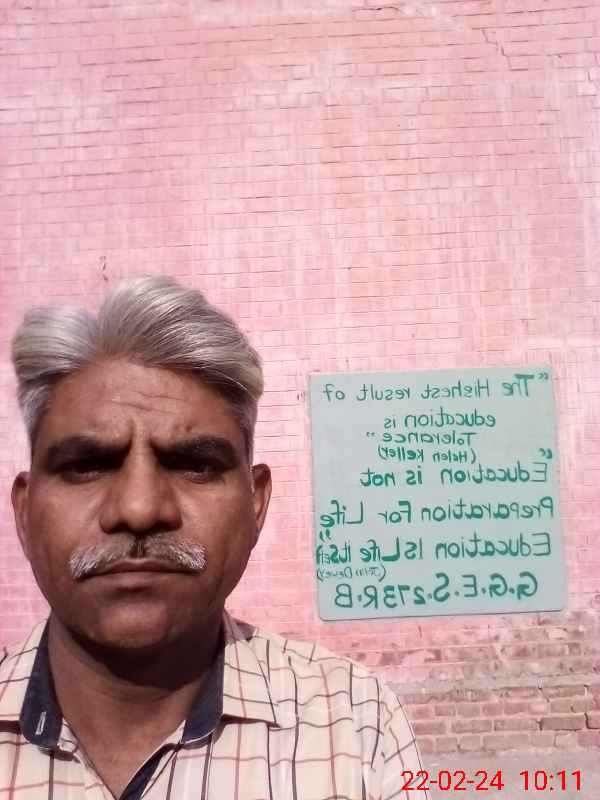 "The Highest result of
education is
Tolerance"
(Helen Keller)
"Education is not
Preparation For Life
Education Is Life itSelf"
(John Dewey)
G.G.E.S.273R.B
22-02-24 10:11